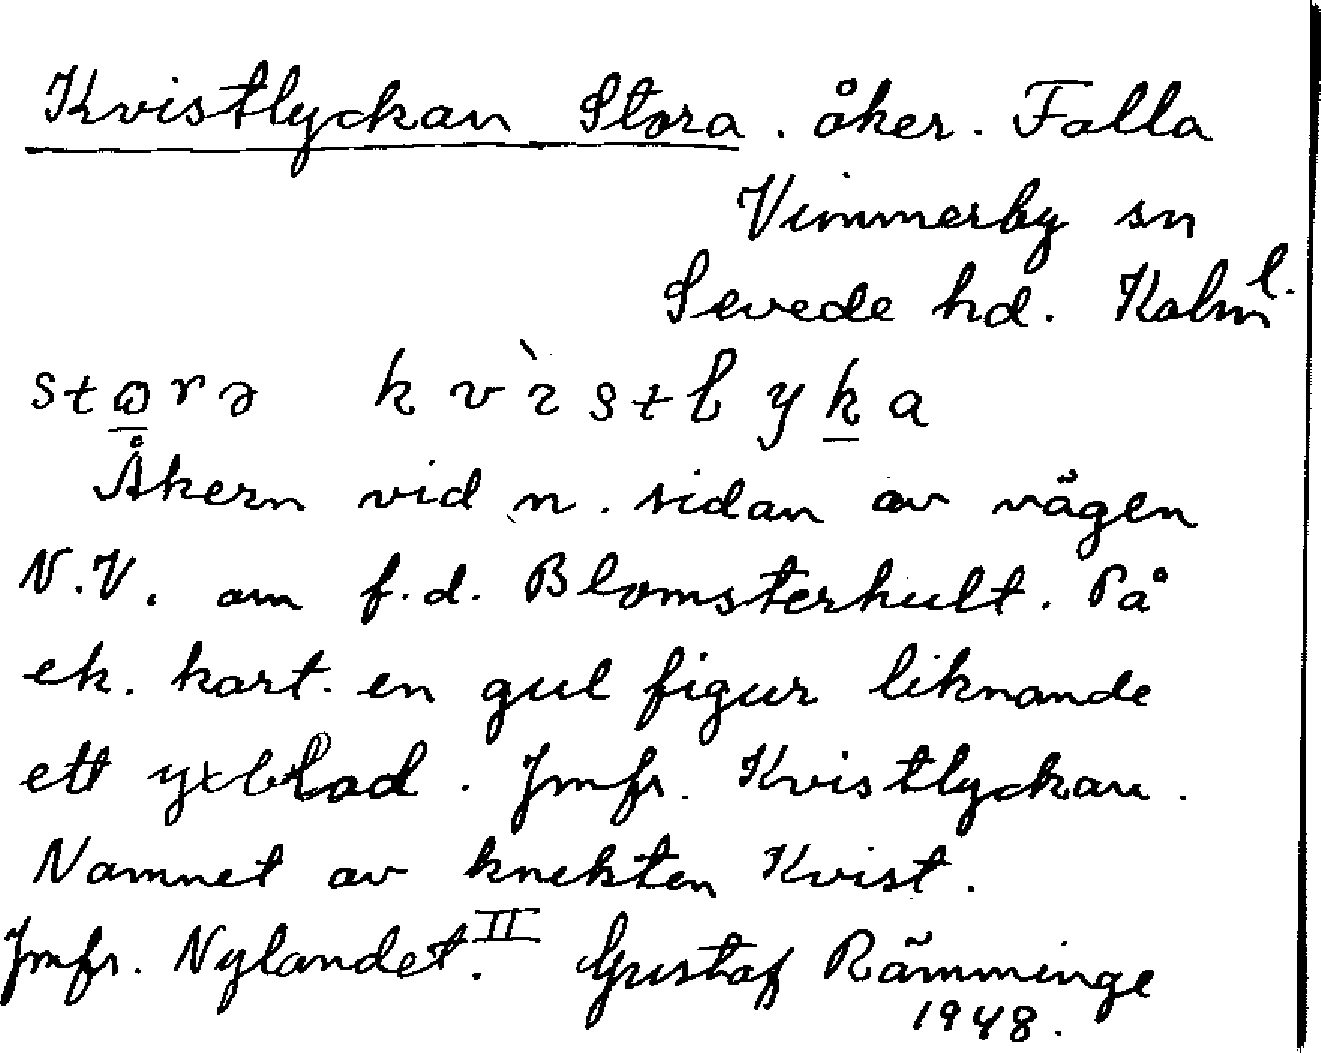 Kvistlyckan Stora. åker. Falla
Vimmerby sn
Sevede hd. Kalm l.
stɷrə kvìstlyka
Åkern vid n. sidan av vägen
N.V. om f.d. Blomsterhult. På
ek. kart. en gul figur liknande
ett yxblad. Jmfr. Kvistlyckan.
Namnet av knekten Kvist.
Jmfr. Nylandet. II Gustaf Rämminge
1948.